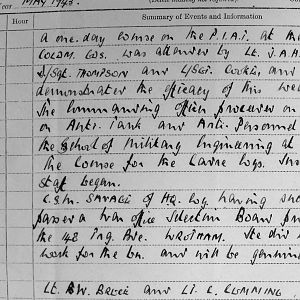 MAY 1943.
Hour
Summary of Events and Information
A one-day course on the P.I.A.T. at the
COLDM. GDS. was attended by Lt. J.A.H.
D/Sgt. THOMPSON and L/Sgt. COOKE, and
demonstrated the efficacy of this wea
The Commanding Officer proceeded on
on Anti-Tank and Anti-Personnel
the School of Military Engineering at
The Course for the Carrier
staff began.
C.S.M. SAVAGE of HQ. Coy. having
passed a War Office Selection Board
the 148 Ing. Bde. WROTHAM. He did
work for the Bn. and will be genuin
Lt. B.W. BRUCE and Lt. C. CUMMING